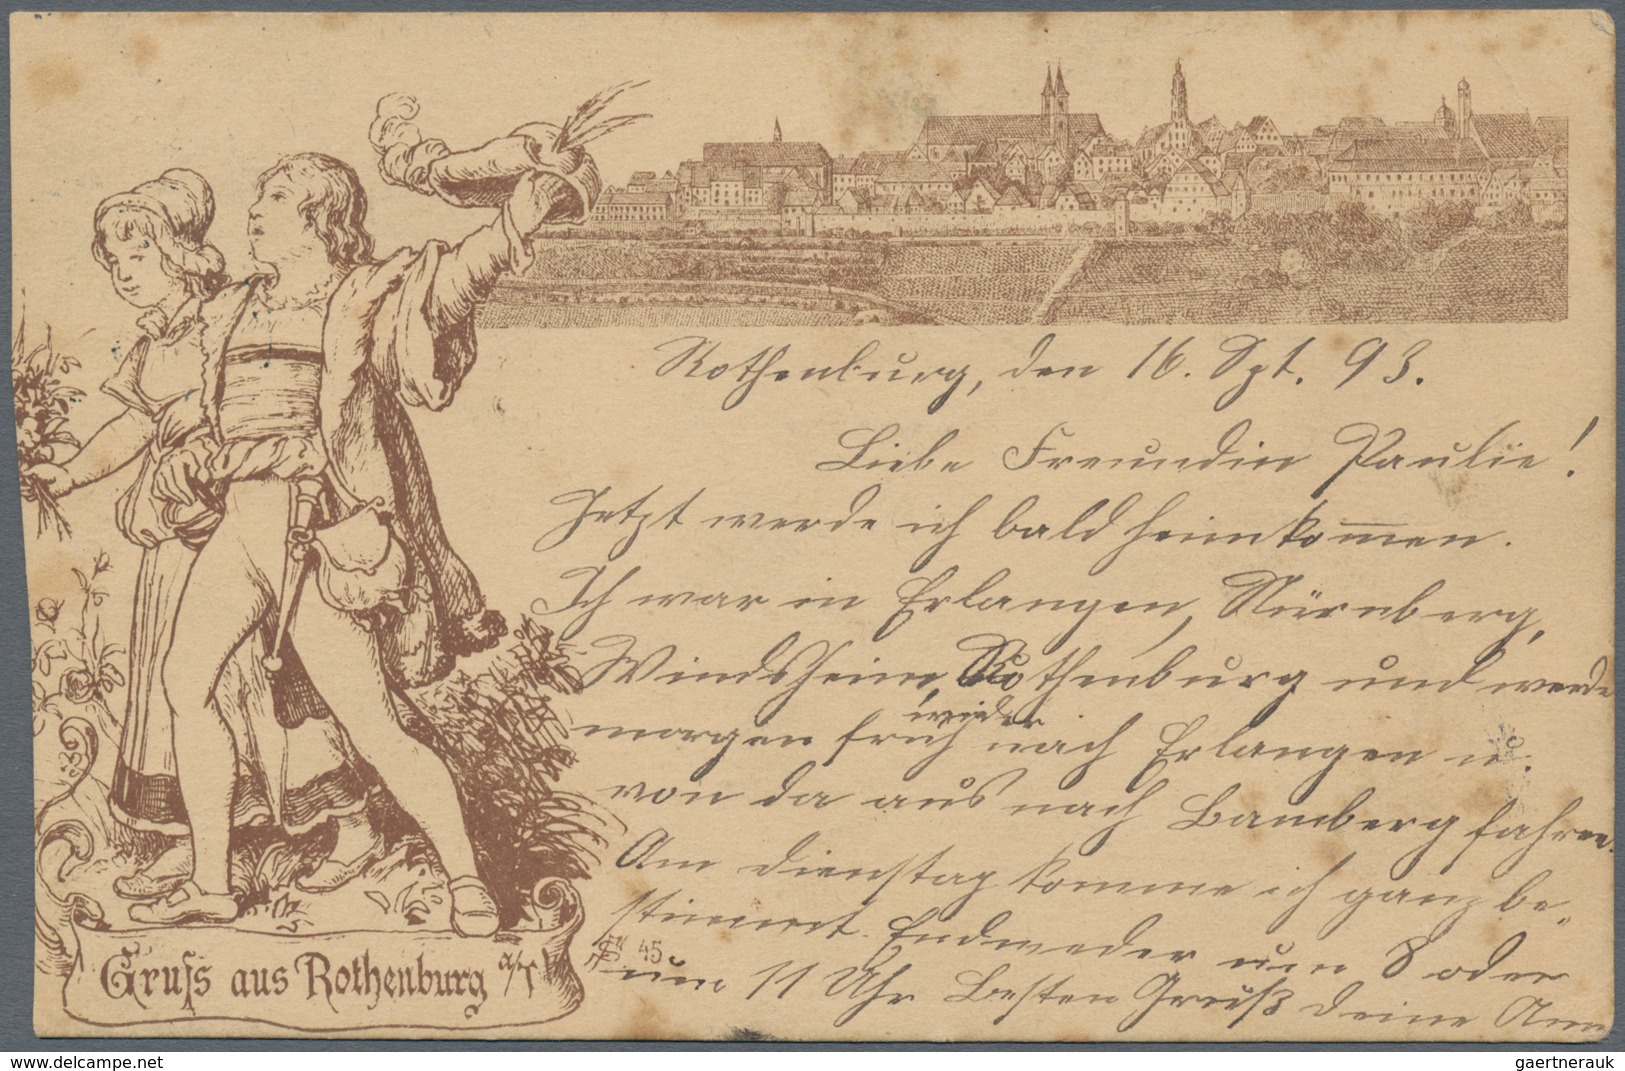 Rothenburg, den 16. Spt. 93.
Liebe Freundin Paulie!
Jetzt werde ich bald heimkom̄en.
Ich war in Erlangen, Nürnberg,
Windsheim, Rothenburg und werde
morgen früh wieder nach Erlangen u.
von da aus nach Bamberg fahren.
Am Dienstag komme ich ganz be-
stimmt. Endweder um 8 oder
um 11 Uhr Besten Gruß Deine Ann
Gruſs aus Rothenburg a/T
45
gaertnerauk
© www.delcampe.net